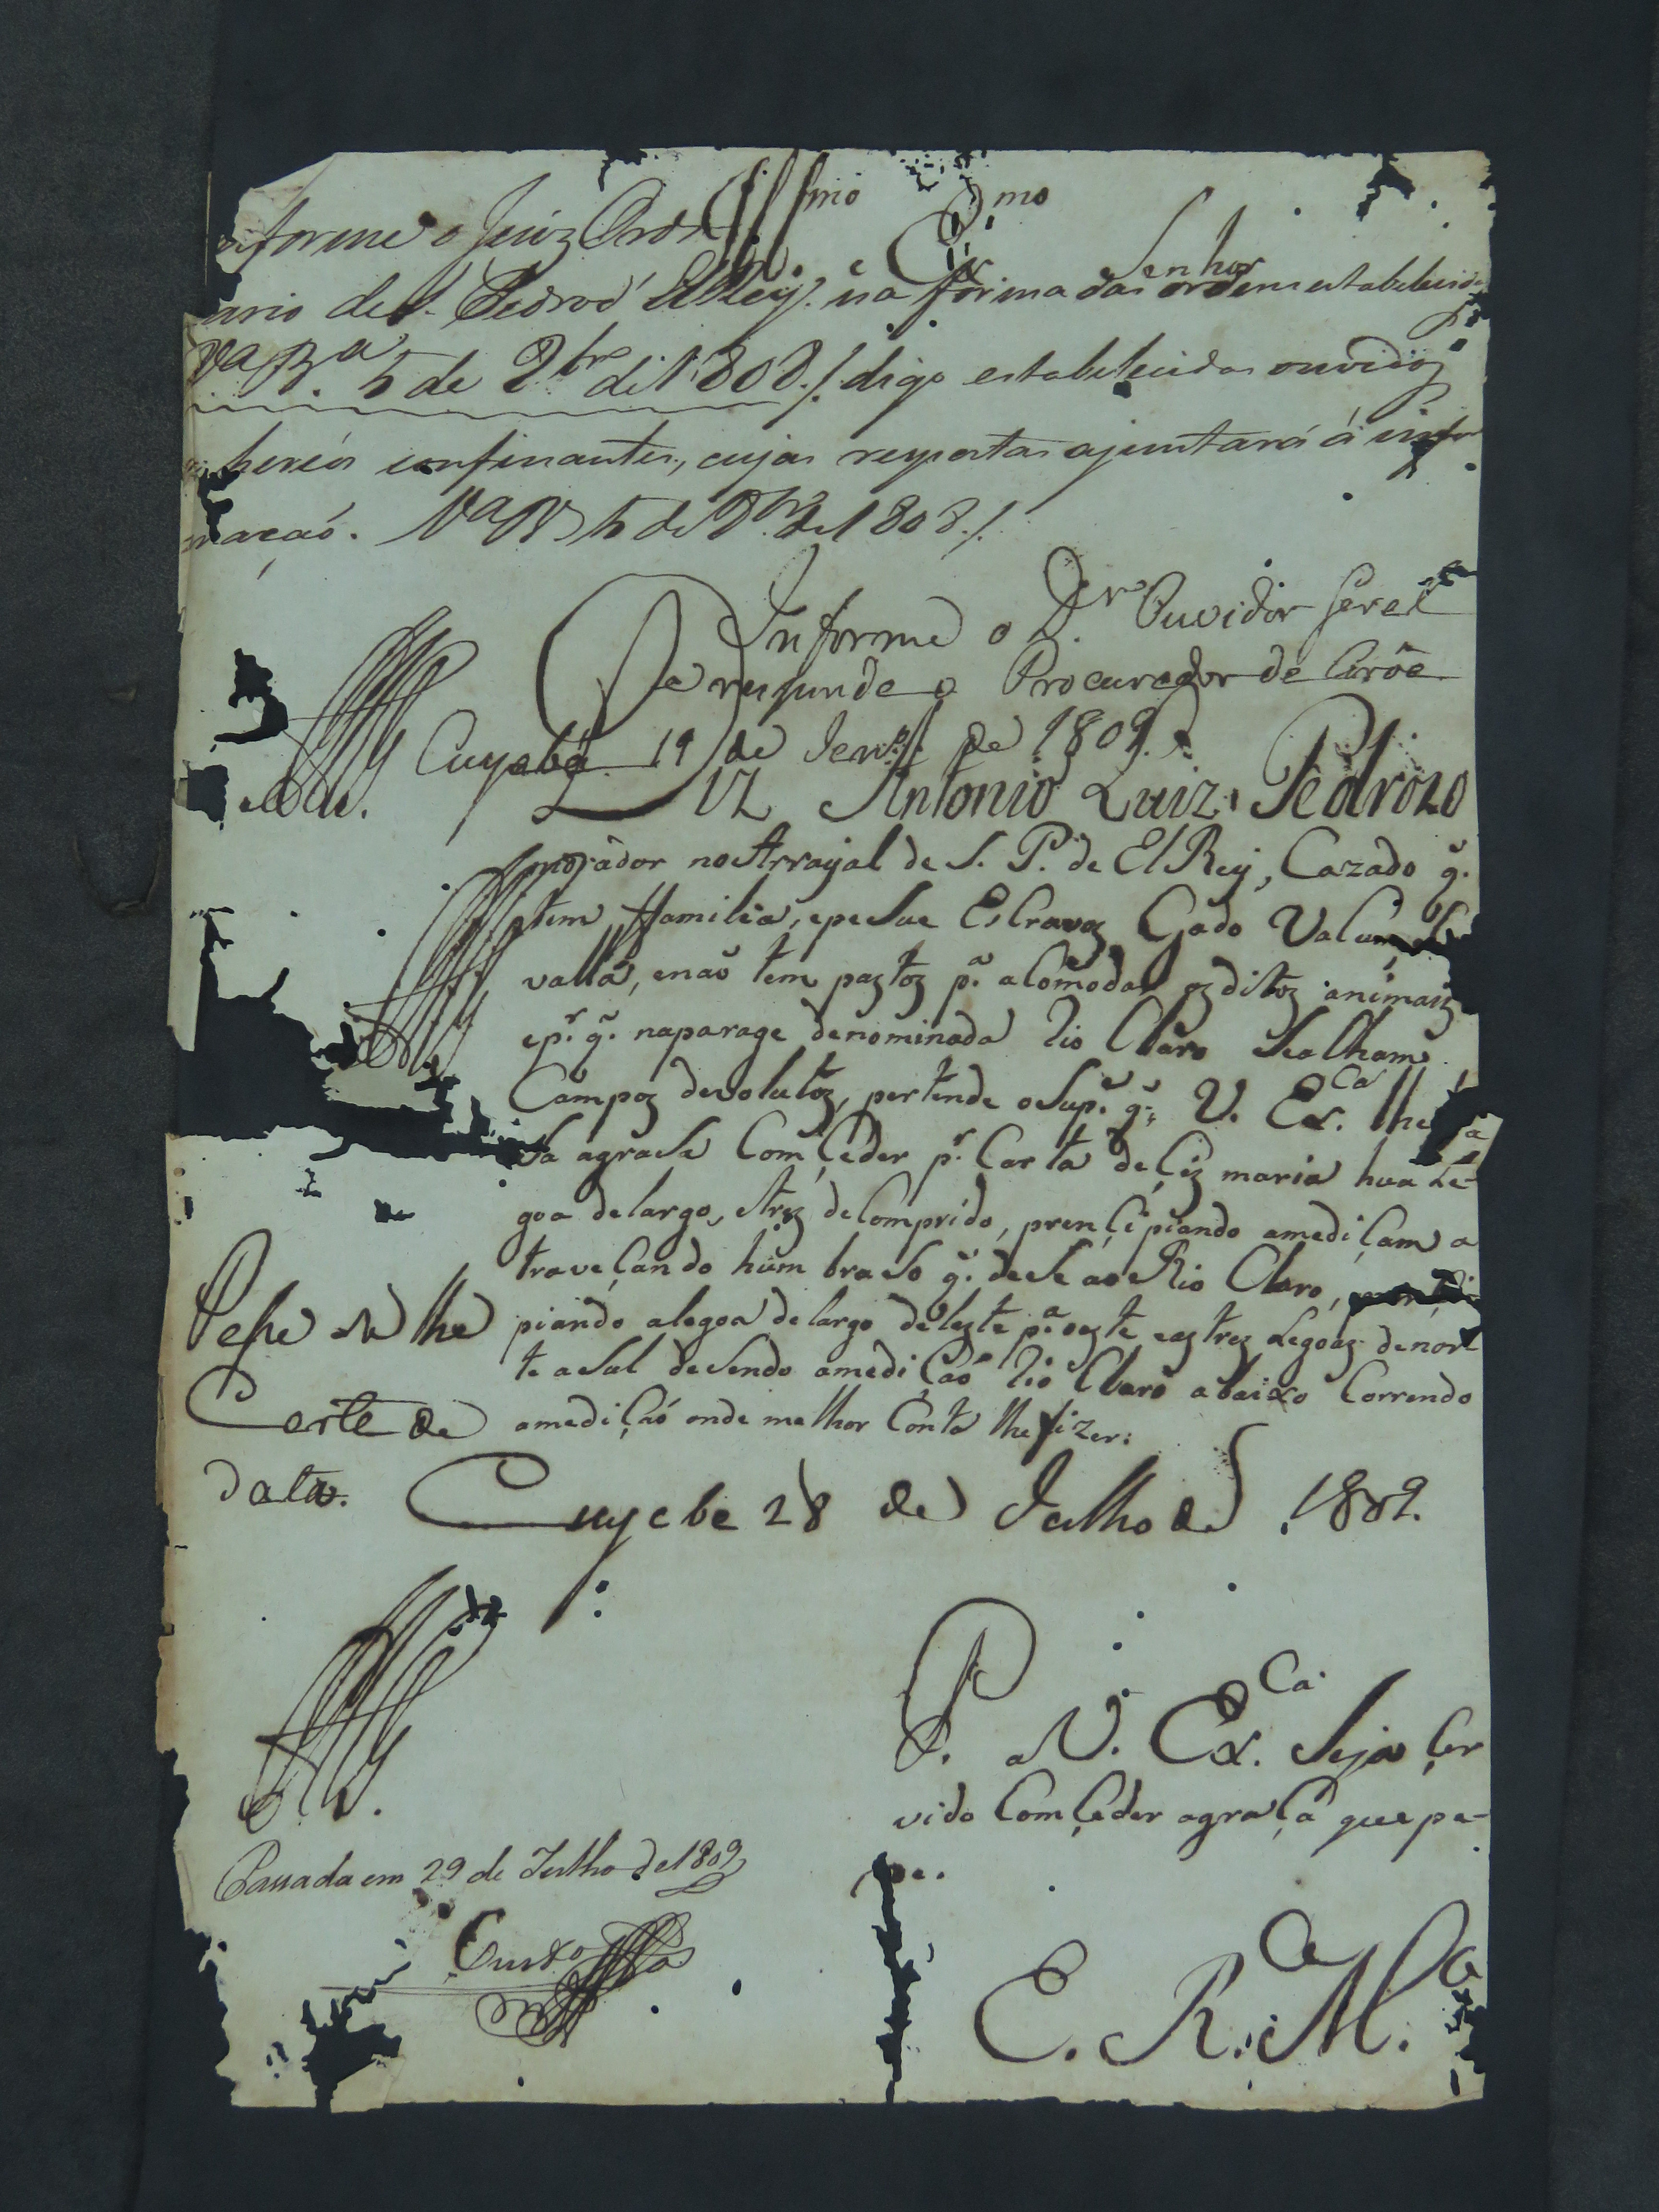 Illmo e Exmo Senhor
nforme o Juiz Ordi
nario de S. Pedro d'ElRey. na forma das ordens estabelecidas
Va Ba. 5 de 9bro de 1808./. digo estabelecidas ouvidos
os hereos confinantes, cujas respostas ajuntará á infor
mação. Va Ba 5 de 9bro de 1808./.
Informe o Dr. Ouvidor Geral
e responde o Procurador da Corôa
Cuyabá 19 de Janro. de 1809.
Diz Antonio Luiz Pedrozo
morador no Arrayal de S. P. de El Rey, Cazado q.
tem familia, e pesue Escravoz Gado Vacum
vallar, e naõ tem pastoz pa. acomodar oz ditoz animaiz
e pr. q. na parage denominada Rio Claro se acham
Campoz devolutoz, pertende o Supe. q. V. Exca. lhe fa
sa a grasa Comçeder pr. Carta de Çizmaria hua Le-
goa de largo, e trez de Comprido, prençipiando a mediçam a
traveçando hum braso q. dese ao Rio Claro,
piando a legoa de largo de leste pa. oeste e az trez Legoaz de nor
te a sul desendo a mediçaõ Rio Claro abaixo Correndo
a mediçaõ onde melhor Conta lhe fizer.
Passe se lhe
Carta de
data.
Cuyaba 28 de Julho de 1809.
P. a V. Exca. Seja Çer
vido Comçeder a graça que pe-
de.
Passada em 29 de Julho de 1809
E. R. Mce